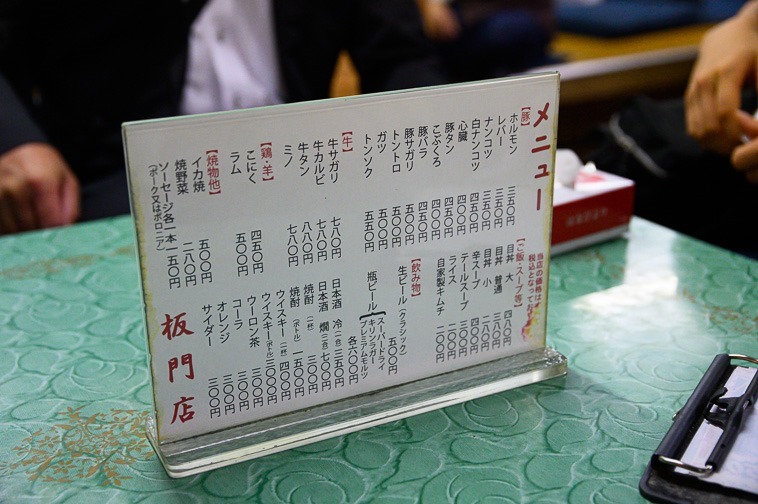 メニュー
【豚】
ホルモン 三五〇円
レバー 三五〇円
ナンコツ 三五〇円
白ナンコツ 四五〇円
心臓 四五〇円
豚タン 四五〇円
こぶくろ 四五〇円
豚バラ 五〇〇円
豚サガリ 五〇〇円
トントロ 五〇〇円
ガツ 五五〇円
トンソク 五五〇円
【牛】
牛サガリ 七八〇円
牛カルビ 七八〇円
牛タン 七八〇円
ミノ 七八〇円
【鶏・羊】
こにく 四五〇円
ラム 五〇〇円
【焼物他】
イカ焼 五〇〇円
焼野菜 二八〇円
ソーセージ各一本 一五〇円
(ポーク又はボロニア)
当店の価格は
税込となってお
【ご飯・スープ等】
目丼 大 四八〇円
目丼 普通 三八〇円
目丼 小 二八〇円
辛スープ 三〇〇円
テールスープ 三〇〇円
ライス 二〇〇円
自家製キムチ 二〇〇円
【飲み物】
生ビール(クラシック) 五〇〇円
瓶ビール
スーパードライ
キリンラガー
プレミアムモルツ
各六〇〇円
日本酒 冷(二合) 三五〇円
日本酒 燗(二合) 七〇〇円
焼酎(一杯) 三〇〇円
焼酎(ボトル) 一五〇〇円
ウイスキー(一杯) 四〇〇円
ウイスキー(ボトル) 三〇〇〇円
ウーロン茶 三〇〇円
コーラ 三〇〇円
オレンジ 三〇〇円
サイダー 三〇〇円
板門店